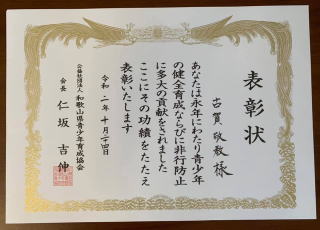 表彰状
古賀敬教様
あなたは永年にわたり青少年
の健全育成ならびに非行防止
に多大の貢献をされました
ここにその功績をたたえ
表彰いたします
令和二年十月二十四日
公益社団法人 和歌山県青少年育成協会
会長 仁坂吉伸